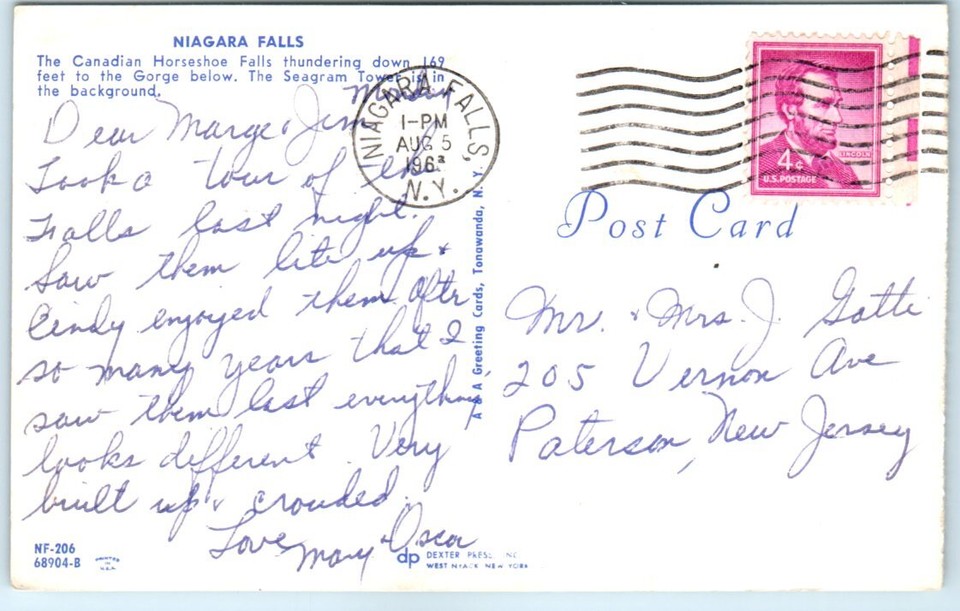 NIAGARA FALLS
The Canadian Horseshoe Falls thundering down 169
feet to the Gorge below. The Seagram Tower is in
the background.
Monday
Dear Marge & Jim
Took a tour of the
Falls last night.
Saw them lite up &
Cindy enjoyed them. After
so many years that I
saw them last everything
looks different. Very
built up & crouded.
Love
Mary & Oscar
NF-206
68904-B
PRINTED
IN
U.S.A.
dp DEXTER PRESS, INC.
WEST NYACK NEW YORK
A & A Greeting Cards, Tonawanda, N. Y.
NIAGARA FALLS,
1-PM
AUG 5
196
N.Y.
LINCOLN
4¢
U.S. POSTAGE
Post Card
Mr. & Mrs. J Gatti
205 Vernon Ave
Paterson, New Jersey